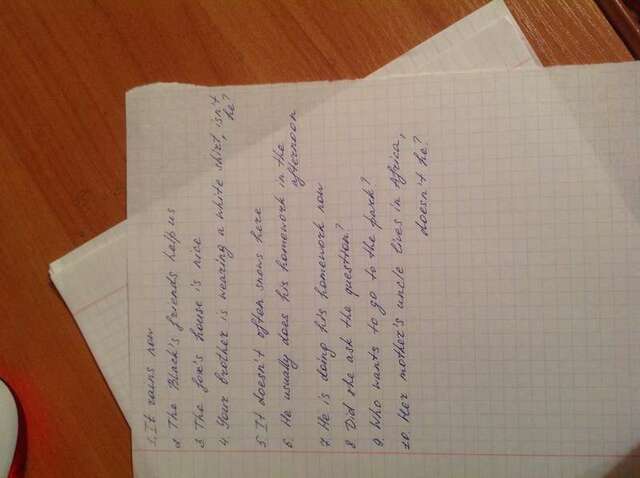 1. It rains now
2 The Black's friends help us
3 The fox's house is nice
4. Your brother is wearing a white shirt, isn't
he?
5. It doesn't often snows here
6. He usually does his homework in the
afternoon
7. He is doing his homework now
8 Did she ask the question?
9. Who wants to go to the park?
10. Her mother's uncle lives in Africa,
doesn't he?